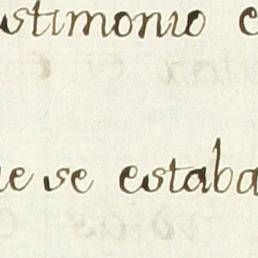 stimonio e
ue se estaba